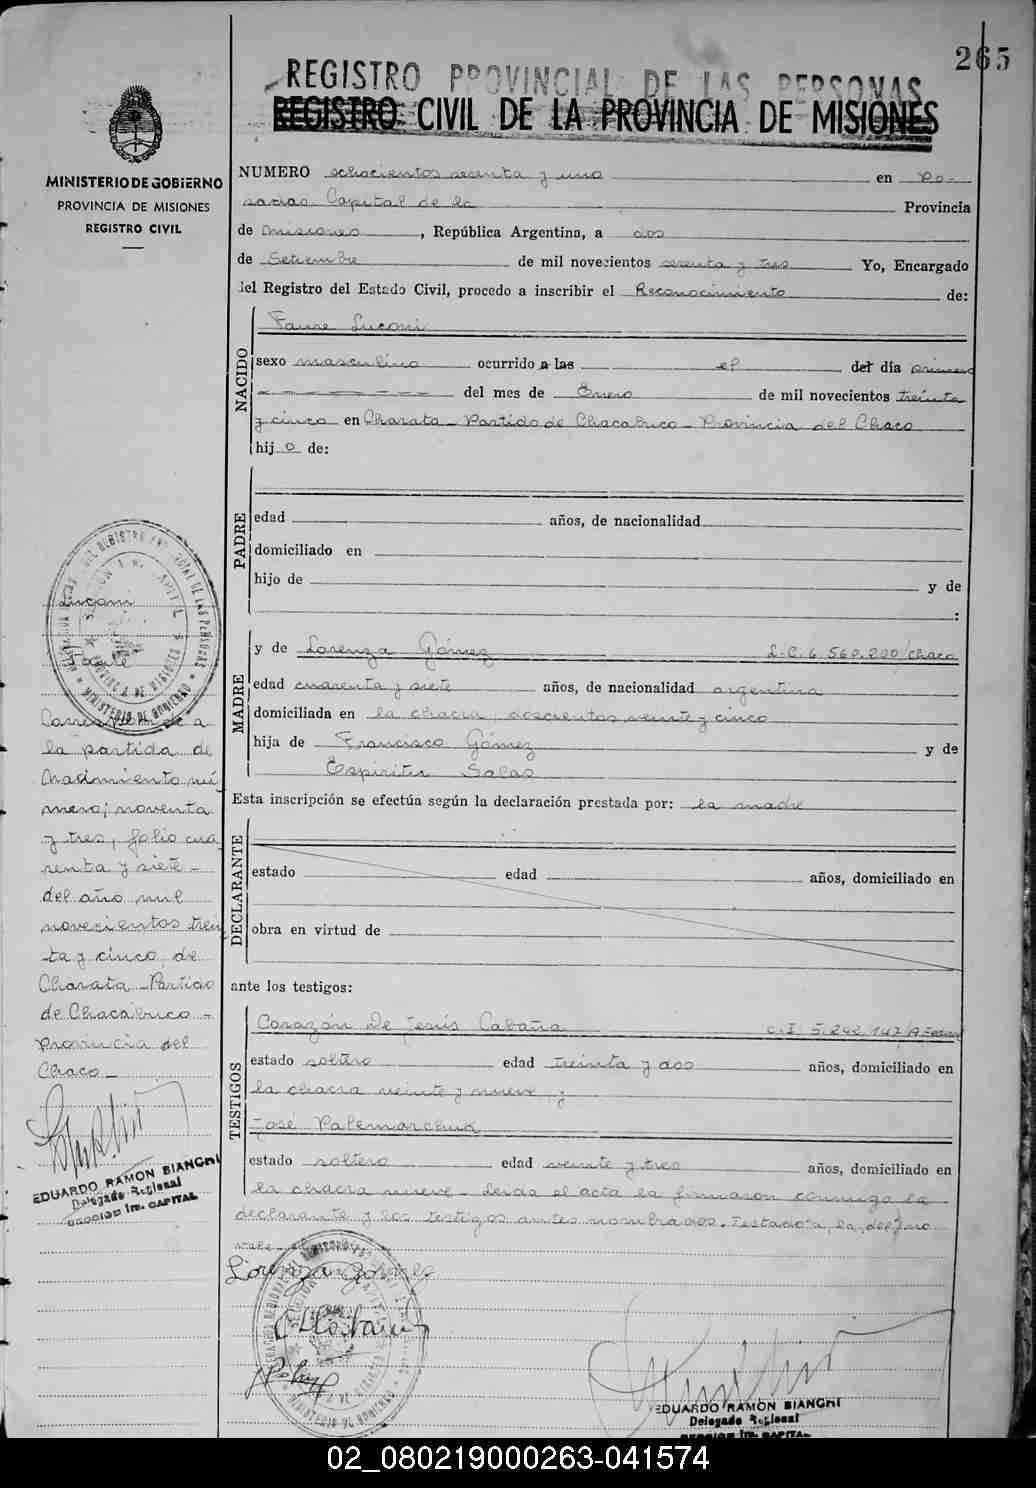 265
REGISTRO PROVINCIAL DE LAS PERSONAS
REGISTRO CIVIL DE LA PROVINCIA DE MISIONES
MINISTERIO DE GOBIERNO
PROVINCIA DE MISIONES
REGISTRO CIVIL
NUMERO ochocientos sesenta y uno en Po-
sadas Capital de la Provincia
de Misiones, República Argentina, a dos
de Setiembre de mil novecientos sesenta y tres Yo, Encargado
del Registro del Estado Civil, procedo a inscribir el Reconocimiento de:
NACIDO
Luconi
sexo masculino ocurrido a las el del día primero
del mes de Enero de mil novecientos treinta
y cinco en Charata - Partido de Chacabuco - Provincia del Chaco
hijo de:
PADRE
edad años, de nacionalidad
domiciliado en
hijo de y de
:
MADRE
y de Lorenza Gómez L.C. 6.560.200/Chaco
edad cuarenta y siete años, de nacionalidad argentina
domiciliada en la chacra, doscientos veinte y cinco
hija de Francisco Gómez y de
Espíritu Salas
Esta inscripción se efectúa según la declaración prestada por: la madre
DECLARANTE
estado edad años, domiciliado en
obra en virtud de
ante los testigos:
TESTIGOS
Corazón De Jesús Cabaña C.I. 5.242.147/
estado soltero edad treinta y dos años, domiciliado en
la chacra veinte y nueve, y
José
estado soltero edad veinte y tres años, domiciliado en
la chacra nueve - Leída el acta la firmaron conmigo la
declarante y los testigos antes nombrados. Testado: a, la, del, no
vale
Lorenza Gomez
EDUARDO RAMON BIANCHI
Delegado Regional
SECCION 1ra. CAPITAL
Luconi
Corresponde a
la partida de
Nacimiento nú
mero; noventa
y tres, folio cua
renta y siete -
del año mil
novecientos trein
ta y cinco, de
Charata - Partido
de Chacabuco -
Provincia del
Chaco -
EDUARDO RAMON BIANCHI
Delegado Regional
SECCION 1ra. CAPITAL
02_080219000263-041574